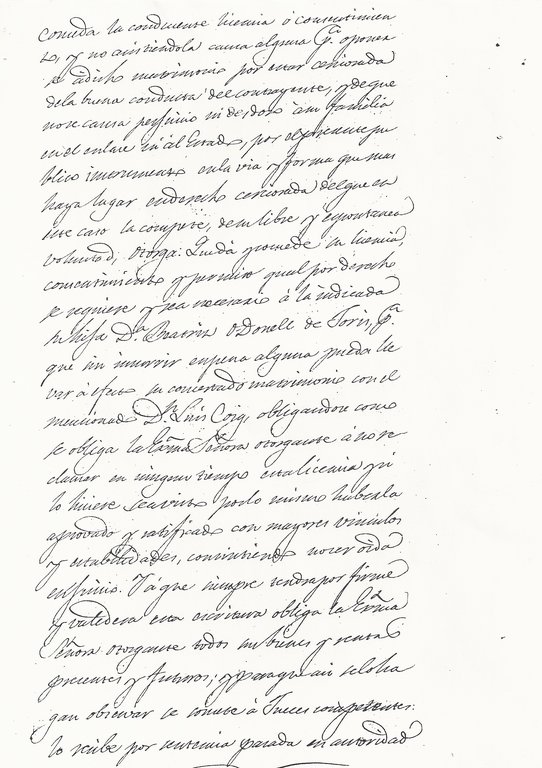 conceda la conducente licencia ó consentimien
to, y no asistiendola causa alguna p.ª oponer
se á dicho matrimonio por estar cerciorada
dela buena conducta del contrayente, y de que
no se causa perjuicio ni desdoro á su familia
en el enlace ni al Estado, por el presente pu
blico instrumento en la via y forma que mas
haya lugar en derecho cerciorada del que en
este caso la compete, de su libre y espontanea
voluntad, otorga: Que dá y concede su licencia,
consentimiento y permiso qual por derecho
se requiere y sea necesario á la indicada
su hija D.ª Beatriz ODonell de Joris, p.ª
que sin incurrir en pena alguna pueda lle
var á efecto su concertado matrimonio con el
mencionado D.n Luis Coig, obligandose como
se obliga la Exma Señora otorgante á no re
clamar en ningun tiempo esta licencia y si
lo hiciere sea visto por lo mismo haberla
aprovado y ratificado con mayores vinculos
y estabilidades, consintiendo no ser oida
en juicio. Y á que siempre tendra por firme
y valedera esta escritura obliga la Exma
Señora otorgante todos sus bienes y rentas
presentes y futuros; y para que asi se lo ha
gan observar se somete á Jueces competentes:
lo recibe por sentencia pasada en autoridad